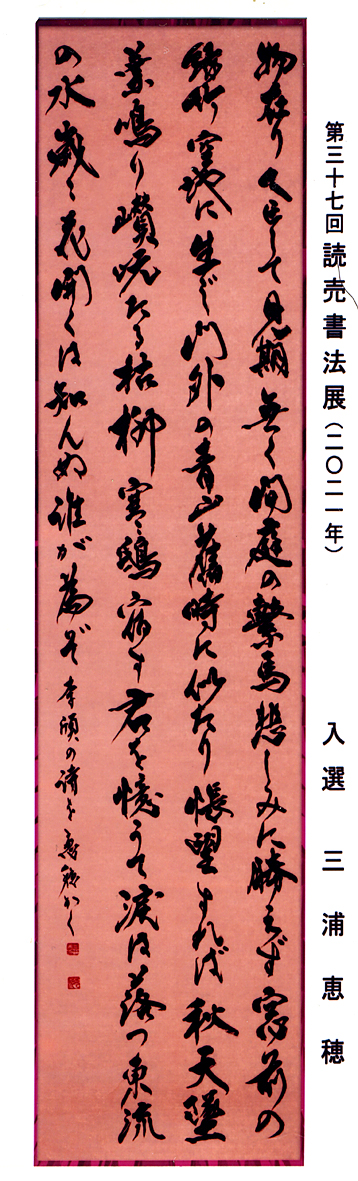 第三十七回読売書法展（二〇二一年）　入選　三浦恵穂
物在り人亡して見期無く間庭の繋馬悲しみに勝えず窓前の
緑竹空地に生ず門外の青山舊時に似たり悵望すれば秋天墜
葉鳴り巑岏たる枯柳寒鴟宿す君を憶うて涙は落つ東流
の水歳々花開くは知んぬ誰が為ぞ　李頎の詩を　恵穂かく